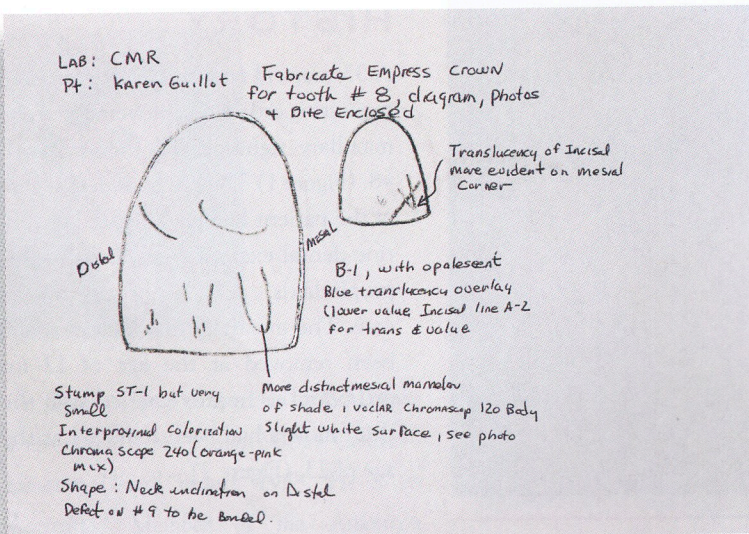 LAB: CMR
Pt: Karen Guillot
Fabricate Empress Crown
for tooth # 8, diagram, Photos
+ Bite Enclosed
Translucency of Incisal
more evident on mesial
Corner
Distal
Mesial
B-1, with opalescent
Blue translucency overlay
(lower value Incisal line A-2
for trans & value
Stump ST-1 but very
Small
Interproximal colorization
Chroma scope 240 (orange-pink
mix)
Shape: Neck inclination on Distal
Defect on #9 to be Bonded.
More distinct mesial mamelon
of shade, Chromascop 120 Body
Slight white surface, see photo